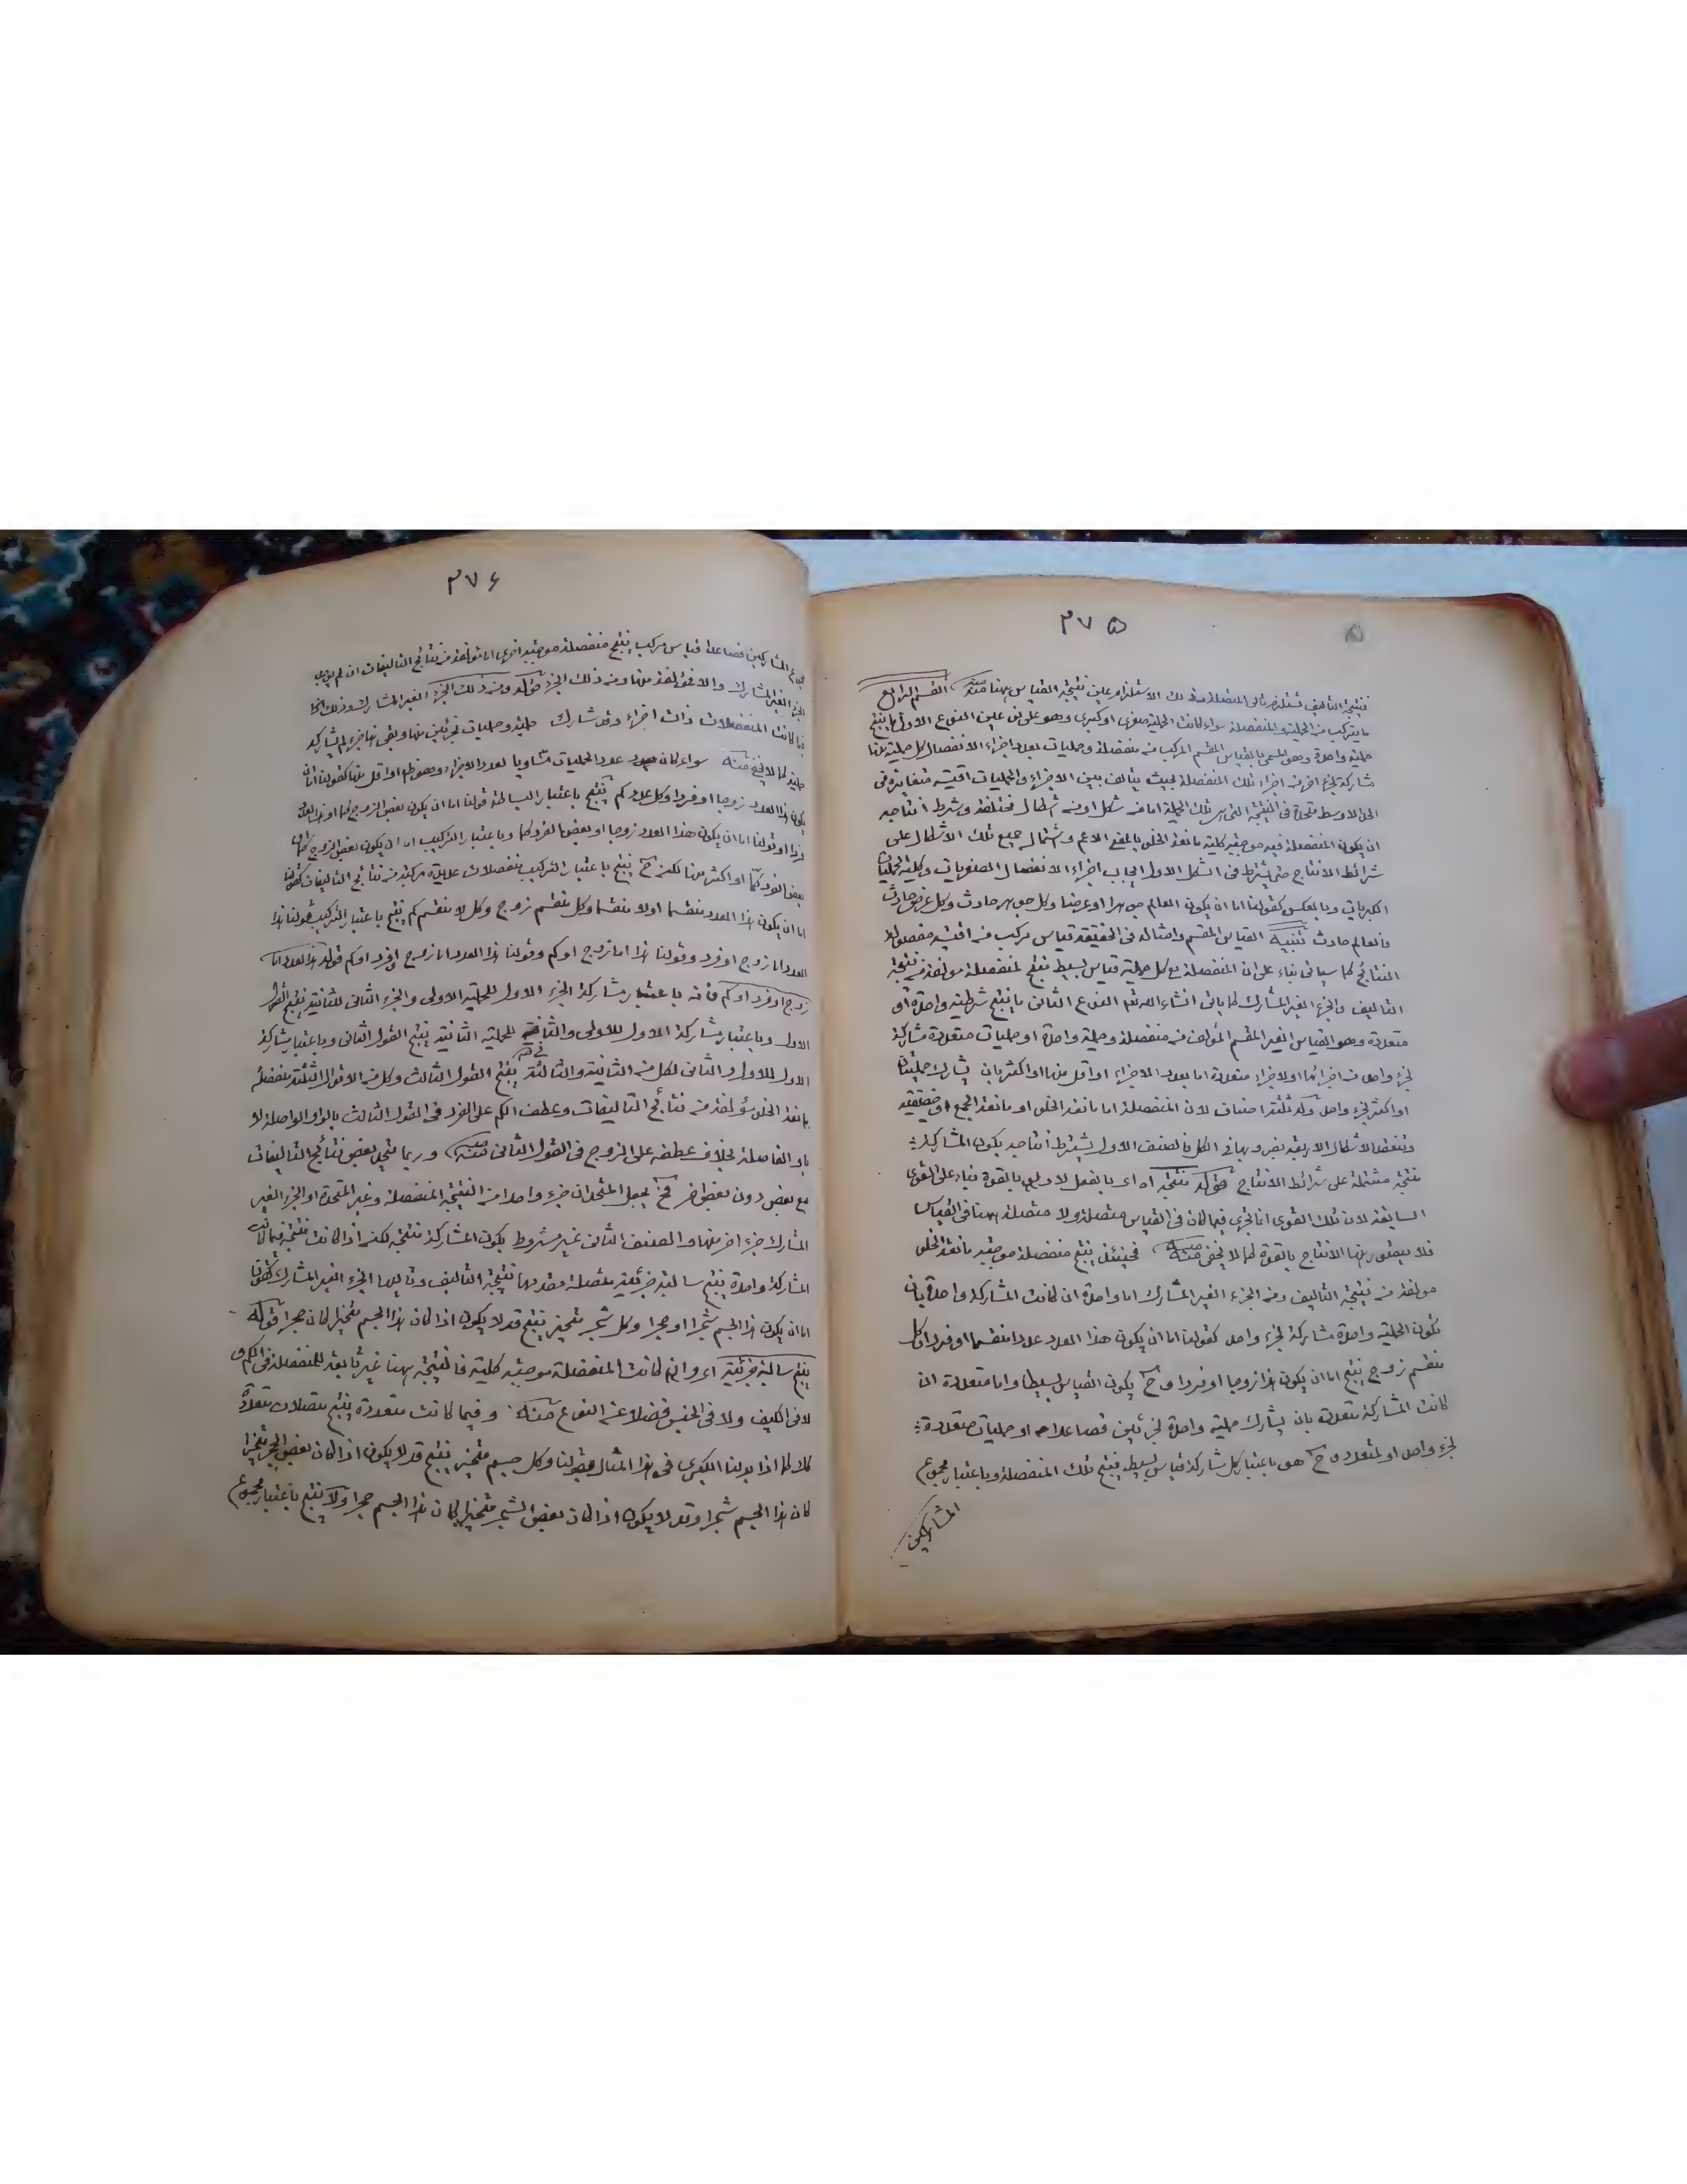 ٣٧٥
نتيجة التأليف تستلزم تالى المتصلة وذلك الاستلزام عين نتيجة القياس ههنا منه القسم الرابع
ما يتركب من الحملية والمنفصلة سواء كانت الحملية صغرى او كبرى وهو على نوعين النوع الاول ما ينتج
حملية واحدة وهو المسمى بالقياس المقسم المركب من منفصلة وحمليات بعدد اجزاء الانفصال كل حملية منها
مشاركة لجزء اخر من اجزاء تلك المنفصلة بحيث يتألف بين الاجزاء والحمليات اقيسة متغايرة فى
الحد الاوسط متحدة فى النتيجة التى هى تلك الحملية اما من شكل او من اشكال مختلفة وشرط انتاجه
ان يكون المنفصلة فيه موجبة كلية مانعة الخلو بالمعنى الاعم واشتمال جميع تلك الاشكال على
شرائط الانتاج حتى يشترط فى الشكل الاول ايجاب اجزاء الانفصال الصغريات وكلية الحمليات
الكبريات وبالعكس كقولنا اما ان يكون العالم جوهرا او عرضا وكل جوهر حادث وكل عرض حادث
فالعالم حادث تنبيه القياس المقسم وامثاله فى الحقيقة قياس مركب من اقيسة مفصولة
النتائج كما سيأتى بناء على ان المنفصلة مع كل حملية قياس بسيط ينتج لمنفصلة مؤلفة من نتيجة
التأليف والجزء الغير المشارك كما يأتى انشاء الله تعم النوع الثانى ما ينتج شرطية واحدة او
متعددة وهو القياس الغير المقسم المؤلف من منفصلة وحملية واحدة او حمليات متعددة مشاركة
لجزء واحد من اجزائها او لاجزاء متعددة اما بعدد الاجزاء او اقل منها او اكثر بان يشارك حمليتان
او اكثر لجزء واحد وله ثلثة اصناف لان المنفصلة اما مانعة الخلو او مانعة الجمع او حقيقية
وتنعقد الاشكال الاربعة بضروبها فى الكل فالصنف الاول يشترط انتاجه بكون المشاركة
منتجة مشتملة على شرائط الانتاج قوله منتجة اه اى بالفعل لا ولو بالقوة بناء على القوى
السابقة لان تلك القوى انما تجرى فيما كان فى القياس متصلة ولا متصلة ههنا فى القياس
فلا يتصور ههنا الانتاج بالقوة كما لا يخفى منه فحينئذ ينتج منفصلة موجبة مانعة الخلو
مؤلفة من نتيجة التأليف ومن الجزء الغير المشارك اما واحدة ان كانت المشاركة واحدة بان
تكون الحملية واحدة مشاركة لجزء واحد كقولنا اما ان يكون هذا العدد عددا منقسما او فردا وكل
منقسم زوج ينتج اما ان يكون هذا زوجا او فردا وح يكون القياس بسيطا واما متعددة ان
كانت المشاركة متعددة بان يشارك حملية واحدة لجزئين فصاعدا او حمليات متعددة
لجزء واحد او لمتعدد وح هو باعتبار كل مشاركة قياس بسيط ينتج تلك المنفصلة وباعتبار مجموع
المشاركين
٣٧٦
مجموع المشاركين فصاعدا قياس مركب ينتج منفصلة موجبة اخرى اما مؤلفة من نتائج التأليفات ان لم يوجد
الجزء الغير المشارك والا فمؤلفة منها ومن ذلك الجزء قوله ومن ذلك الجزء الغير المشارك وذلك انما
كانت المنفصلات ذات اجزاء وقد شارك حملية وحمليات لجزئين منها وبقى منها جزء لم يشاركه
حملية كما لا يخفى منه سواء كان عدد الحمليات مساويا لعدد الاجزاء وهو ظ او اقل منها كقولنا اما ان
يكون هذا العدد زوجا او فردا وكل عدد كم ينتج باعتبار البساطة قولنا اما ان يكون بعض الزوج كما او هذا العدد
فردا او قولنا اما ان يكون هذا العدد زوجا او بعض الفرد كما وباعتبار التركيب اما ان يكون بعض الزوج كما او
بعض الفرد كما او اكثر منها لكن ح ينتج باعتبار التركيب منفصلات عديدة مركبة من نتائج التأليفات كقولنا
اما ان يكون هذا العدد منقسما او لا منقسما وكل منقسم زوج وكل لا منقسم كم ينتج باعتبار التركيب قولنا هذا
العدد اما زوج او فرد وقولنا هذا اما زوج او كم وقولنا هذا العدد اما زوج او فرد او كم قوله هذا العدد اما
زوج او فرد او كم فانه باعتبار مشاركة الجزء الاول للحملية الاولى والجزء الثانى للثانية ينتج القول
الاول وباعتبار مشاركة الاول للاولى والثانى للحملية الثانية ينتج القول الثانى وباعتبار مشاركة
الاول للاول والثانى لكل من الثانية والثالثة ينتج القول الثالث وكل من الاقوال الثلثة منفصلة
مانعة الخلو مؤلفة من نتائج التأليفات وعطف الكم على الفرد فى القول الثالث بالواو الواصلة لا
باو الفاصلة بخلاف عطفه على الزوج فى القول الثانى منه وربما يتحد بعض نتائج التأليفات
مع بعض دون بعض اخر فح يجعل المتحدان جزء واحدا من النتيجة المنفصلة وغير المتحدة او الجزء الغير
المشارك جزء اخر منها والصنف الثانى غير مشروط بكون المشاركة منتجة لكنه اذا كانت منتجة فيما كانت
المشاركة واحدة ينتج سالبة جزئية متصلة مقدمها نتيجة التأليف وتاليها الجزء الغير المشارك كقولنا
اما ان يكون هذا الجسم شجرا او حجرا وكل شجر متحيز ينتج قد لا يكون اذا كان هذا الجسم متحيزا كان حجرا قوله
ينتج سالبة جزئية اى وان كانت المنفصلة موجبة كلية فالنتيجة ههنا غير تابعة للمنفصلة فى الكم و
لا فى الكيف ولا فى الجنس فضلا عن النوع منه وفيما كانت متعددة ينتج متصلات متعددة
كما اذا بدلنا الكبرى فى هذا المثال بقولنا وكل جسم متحيز ينتج قد لا يكون اذا كان بعض الحجر متحيزا
كان هذا الجسم شجرا وقد لا يكون اذا كان بعض الشجر متحيزا كان هذا الجسم حجرا ولا ينتج باعتبار مجموع